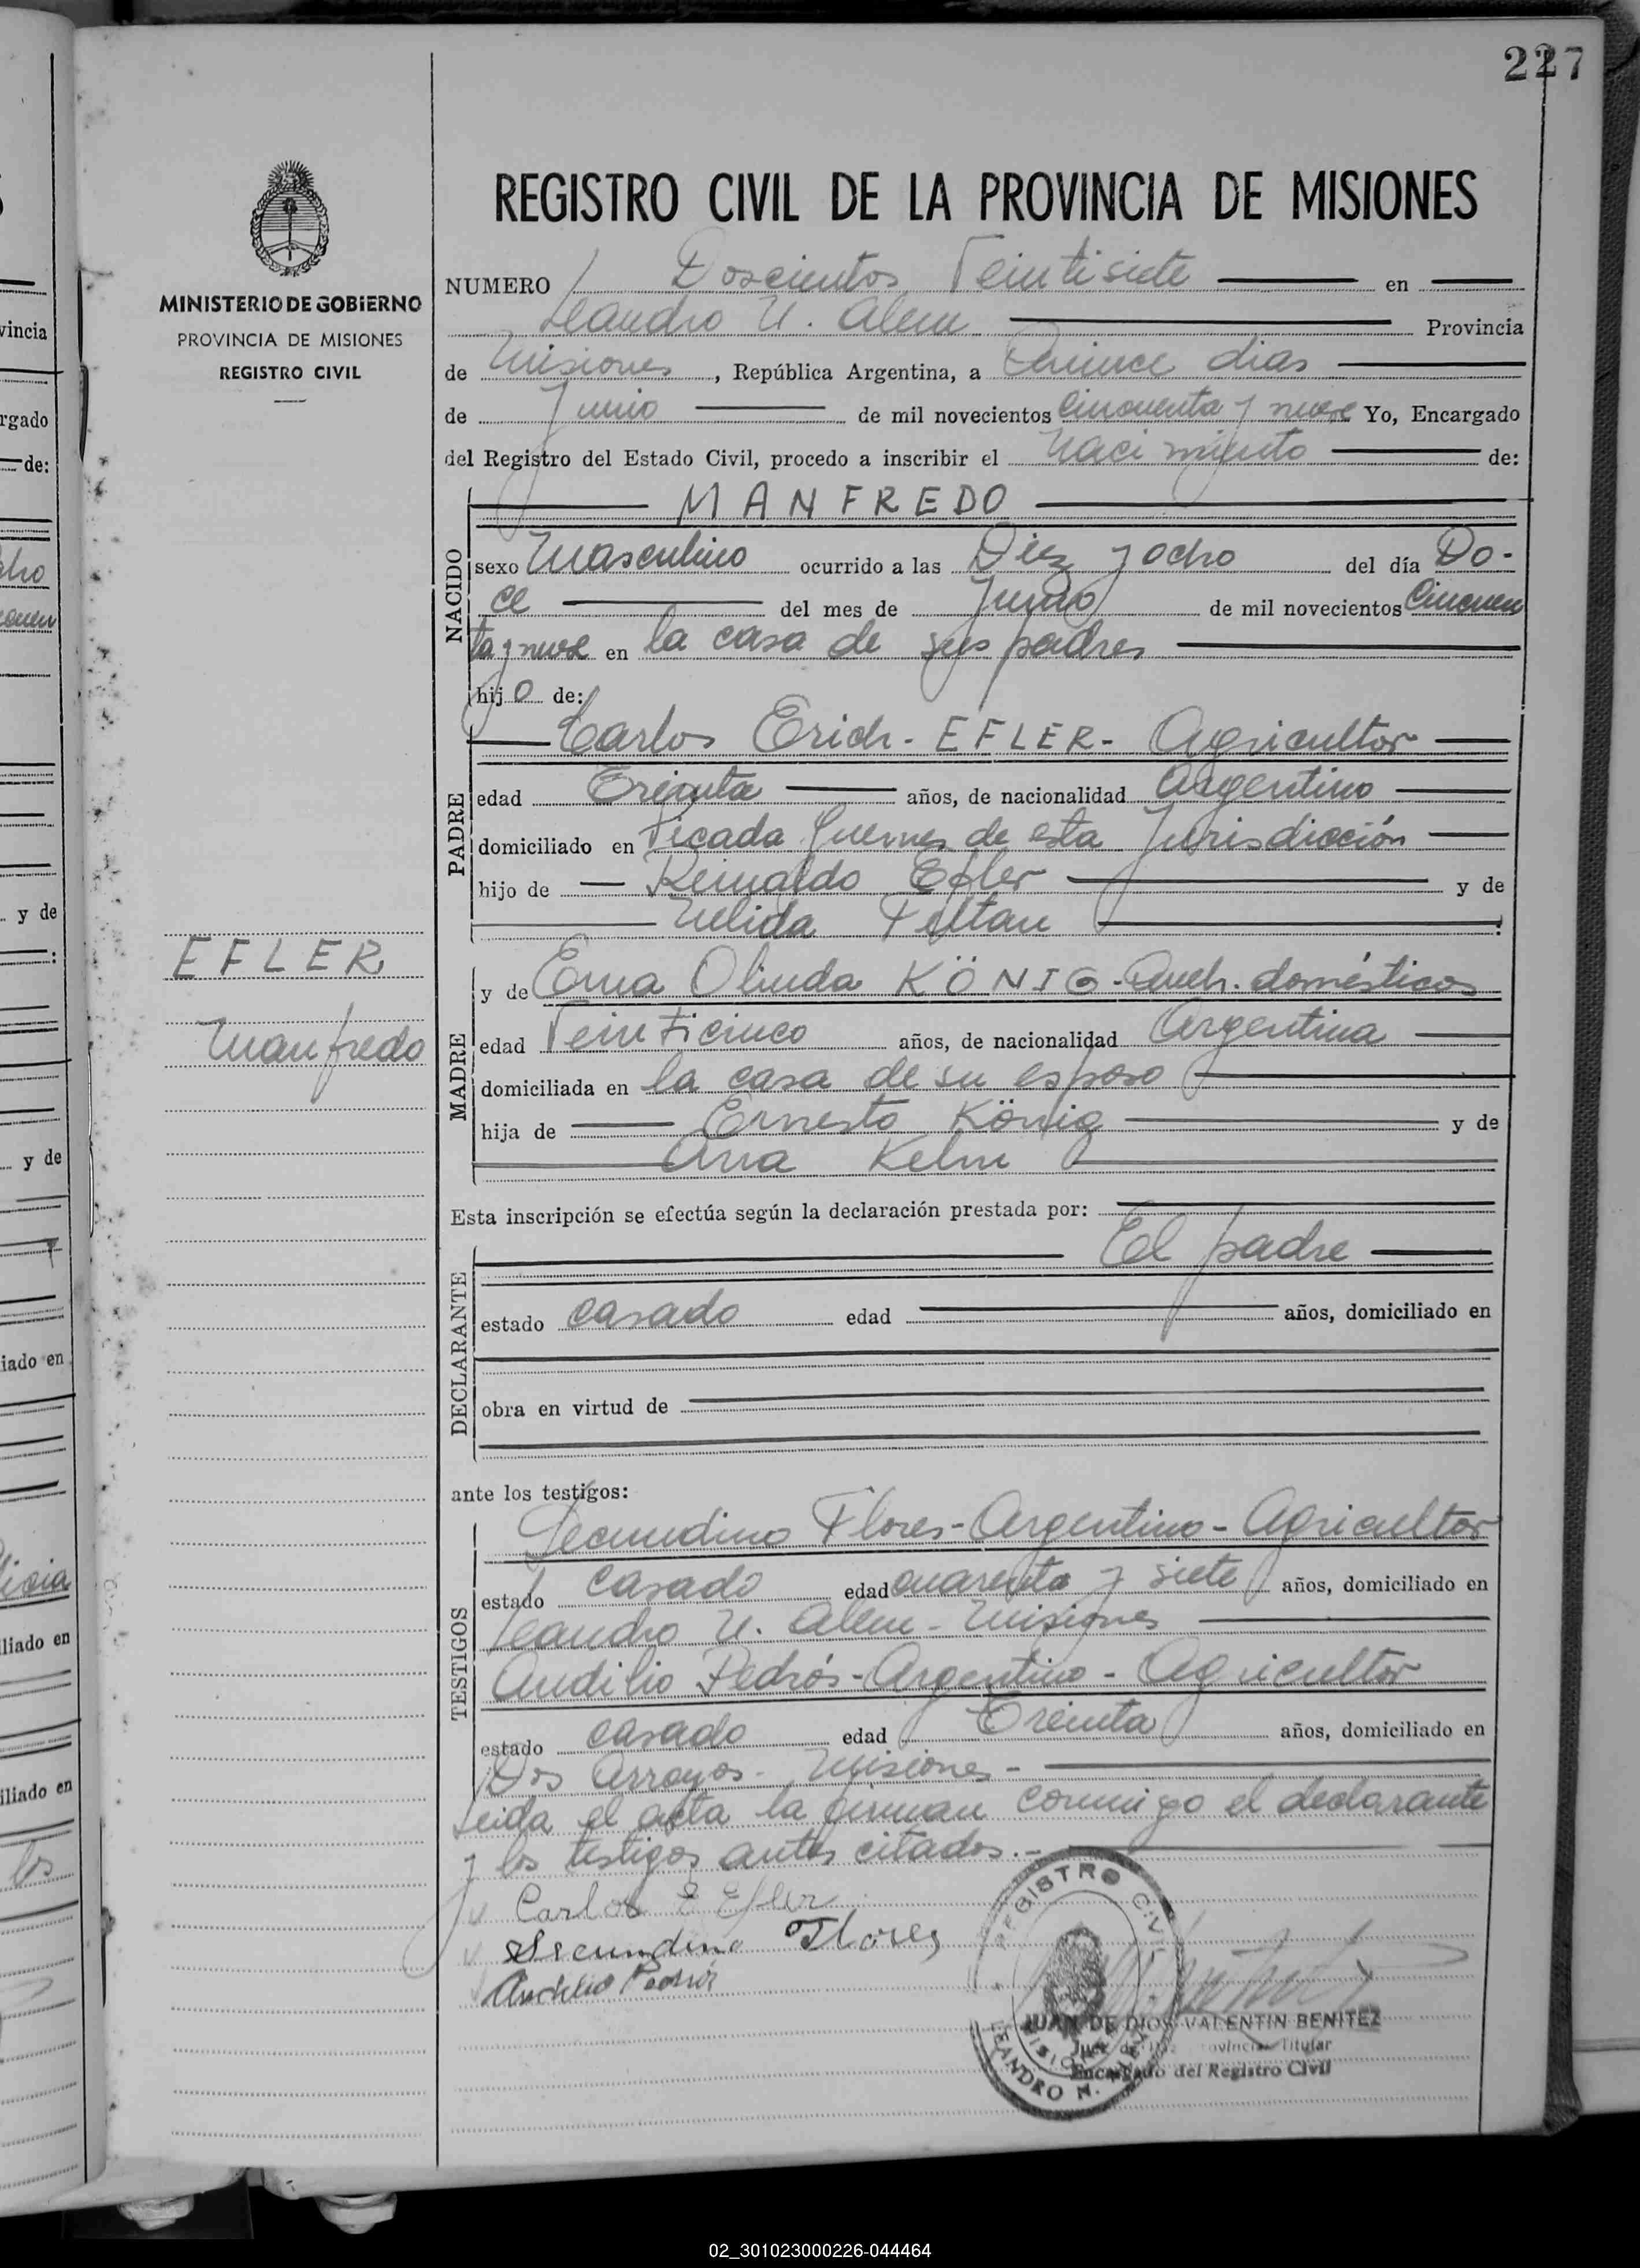 227
MINISTERIO DE GOBIERNO
PROVINCIA DE MISIONES
REGISTRO CIVIL
EFLER
Manfredo
REGISTRO CIVIL DE LA PROVINCIA DE MISIONES
NUMERO Doscientos Veintisiete en
Leandro N. Alem Provincia
de Misiones, República Argentina, a Quince dias
de Junio de mil novecientos Cincuenta y nueve Yo, Encargado
del Registro del Estado Civil, procedo a inscribir el Nacimiento de:
MANFREDO
NACIDO
sexo Masculino ocurrido a las Diez y ocho del día Do-
ce del mes de Junio de mil novecientos Cincuen
ta y nueve en la casa de sus padres
hijo de:
Carlos Erich - EFLER - Agricultor
PADRE
edad Treinta años, de nacionalidad Argentino
domiciliado en Picada Guemes de esta Jurisdicción
hijo de Reinaldo Efler y de
MADRE
y de Erna Olinda KÖNIG - Queh. domésticos
edad Veinticinco años, de nacionalidad Argentina
domiciliada en la casa de su esposo
hija de Ernesto König y de
Ana Kelm
Esta inscripción se efectúa según la declaración prestada por:
El padre
DECLARANTE
estado casado edad años, domiciliado en
obra en virtud de
ante los testigos:
TESTIGOS
Secundino Flores - Argentino - Agricultor
estado casado edad cuarenta y siete años, domiciliado en
Leandro N. Alem - Misiones
Audilio Pedrós - Argentino - Agricultor
estado casado edad Treinta años, domiciliado en
Dos Arroyos - Misiones -
Leida el acta la firman conmigo el declarante
y los testigos antes citados.-
Carlos E Efler
Secundino Flores
Audilio Pedrós
REGISTRO CIVIL
MISIONES
LEANDRO N. ALEM
JUAN DE DIOS VALENTIN BENITEZ
Titular
Encargado del Registro Civil
02_301023000226-044464